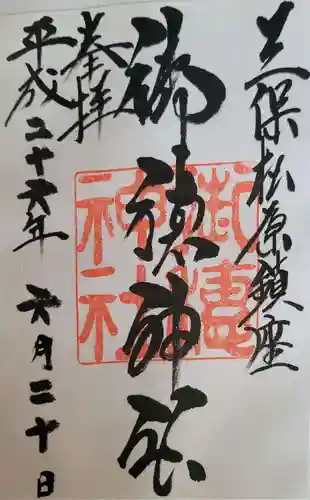 三保松原鎮座
御穂神社
奉拝
平成二十六年 六月二十日
御穂神社